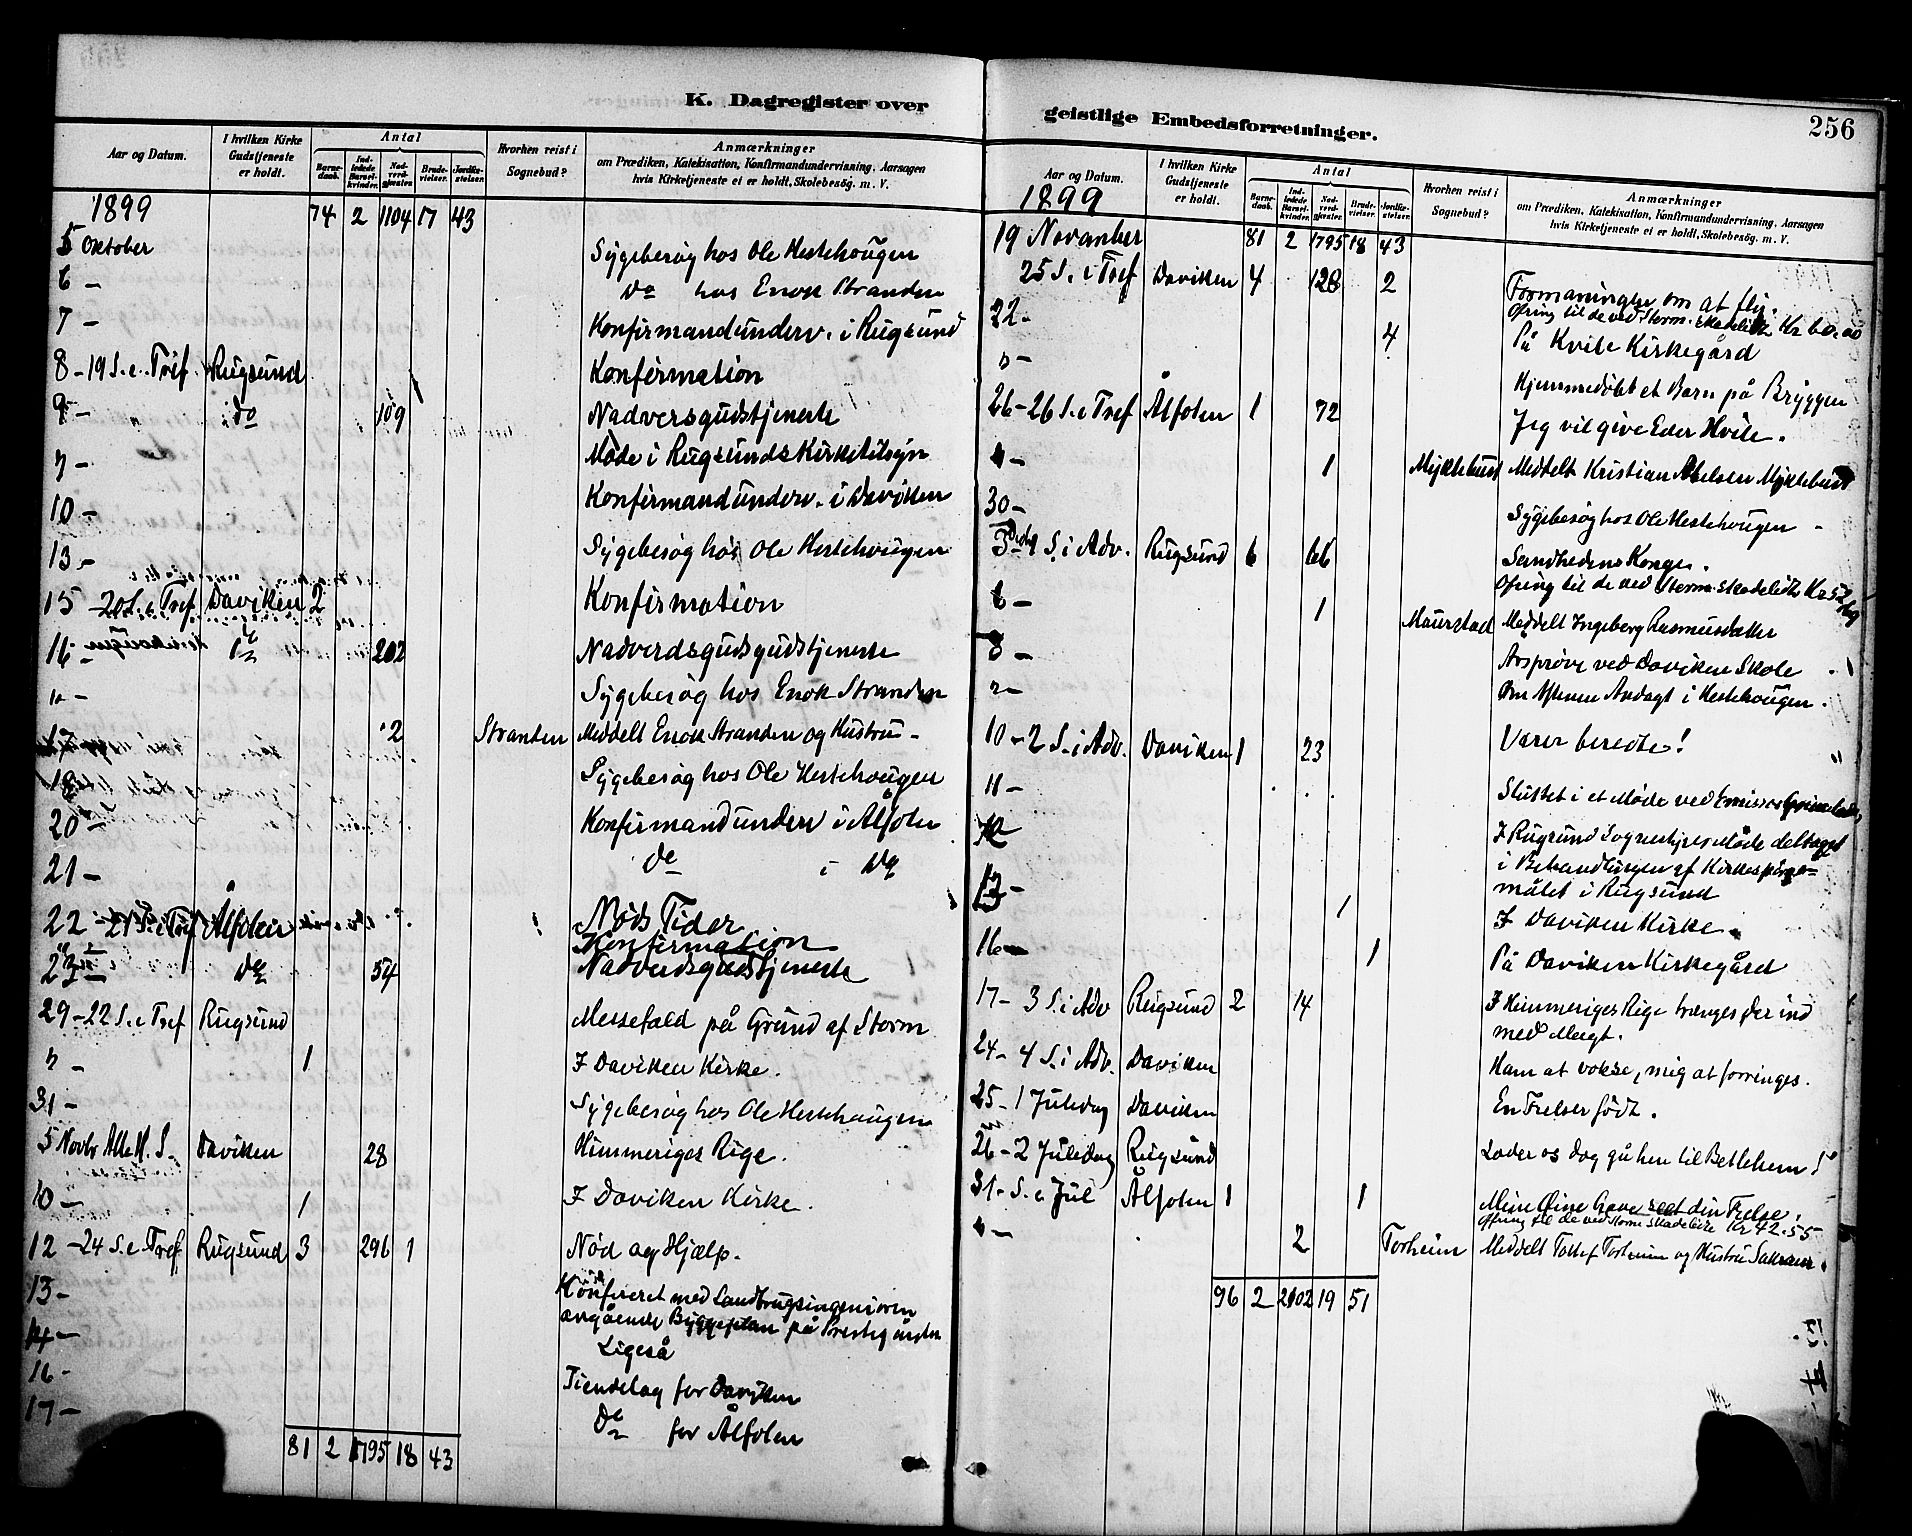 K. Dagregister over
Aar og Datum. I hvilken Kirke Gudstjeneste er holdt. Antal Barnedaab. Indledede Barselkvinder. Nadverdgjester. Brudevielser. Jordfæstelser. Hvorhen reist i Sognebud? Anmærkninger om Prædiken, Katekisation, Konfirmandundervisning, Aarsagen hvis Kirketjeneste ei er holdt, Skolebesög. m. V.
1899 74 2 1104 17 43
5 Oktober Sygebesøg hos Ole Hestehougen
6 - do hos Enok Stranden
7 - Konfirmandunderv. i Rugsund
8 - 19 S. e. Tref. Rugsund Konfirmation
9 - do 109 Nadverdsgudstjeneste
" - Møde i Rugsunds Kirketilsyn
10 - Konfirmandunderv. i Daviken
13 - Sygebesøg hos Ole Hestehougen
15 - 20 S. e. Tref. Daviken 2 Konfirmation
16 - do 202 Nadverdsgudsgudstjeneste
" - Sygebesøg hos Enok Stranden
17 2 Stranden Meddelt Enok Stranden og Hustru -
18 Sygebesøg hos Ole Hestehougen
20 - Konfirmandunderv i Ålfoten
21 - do i do
22 - 21 S. e. Tref Ålfoten Nøds Tider
Konfirmation
23 - do 54 Nadverdsgudstjeneste
29 - 22 S. e Tref Rugsund Messefald på Grund af Storm
" - 1 I Daviken Kirke.
31 - Sygebesøg hos Ole Hestehougen
5 Novbr Alle H. S. Daviken 28 Himmeriges Rige.
10 - 1 I Daviken Kirke.
12 - 24 S. e. Tref. Rugsund 3 296 1 Nød og Hjælp.
13 - Konfereret med Landbrugsingeniøren
angående Byggeplan på Prestegården
14 - Ligeså
16 - Tiendelag for Daviken
17 - do for Ålfoten
81 2 1795 18 43
geistlige Embedsforretninger.
256
Aar og Datum. I hvilken Kirke Gudstjeneste er holdt. Antal Barnedaab. Indledede Barselkvinder. Nadverdgjester. Brudevielser. Jordfæstelser. Hvorhen reist i Sognebud? Anmærkninger om Prædiken, Katekisation, Konfirmandundervisning, Aarsagen hvis Kirketjeneste ei er holdt, Skolebesög. m. V.
1899
19 November 81 2 1795 18 43
25 S. e Tref Daviken 4 128 2 Formaningen om at fly.
Ofring til de ved Storm skadelidte Kr 60.00
22 - 4 På Kvile Kirkegård
" - Hjemmedøbt et Barn på Bryggen
26 - 26 S. e Tref Ålfoten 1 72 Jeg vil give Eder Hvile.
" - 1 Myklebust Meddelt Kristian Myklebust
30 - Sygebesøg hos Ole Hestehougen -
3 Decbr 1 S. i Adv. Rugsund 6 66 Sandhedens Konge.
Ofring til de ved Storm skadelidte Kr 52
6 - 1 Maurstad Meddelt Ingeborg Rasmusdatter
8 - Årsprøve ved Daviken Skole
" - Om Aftenen Andagt i Hestehougen.
10 - 2 S. i Adv. Daviken 1 23 Værer beredte!
11 - Sluttet i et Møde ved Emissær
12 I Rugsund Sognestyres Møde deltaget
i Behandlingen af Kirkespørgs-
målet i Rugsund
13 - 1 I Daviken Kirke.
16 - 1 På Daviken Kirkegård
17 - 3 S. i Adv Rugsund 2 14 I Himmeriges Rige trænges der ind
med Magt.
24 - 4 S. i Adv. Daviken Ham at vokse, mig at forringes.
25 - 1 Juledag Daviken En Frelser født.
26 - 2 Juledag Rugsund Lader os dog gå hen til Betlehem!
31 - S. e Jul Ålfoten 1 1 Mine Øine have seet din Frelse.
Ofring til de ved Storm skadelidte Kr 42.55
" - 2 Torheim Meddelt Torheim og Hustru
96 2 2102 19 51